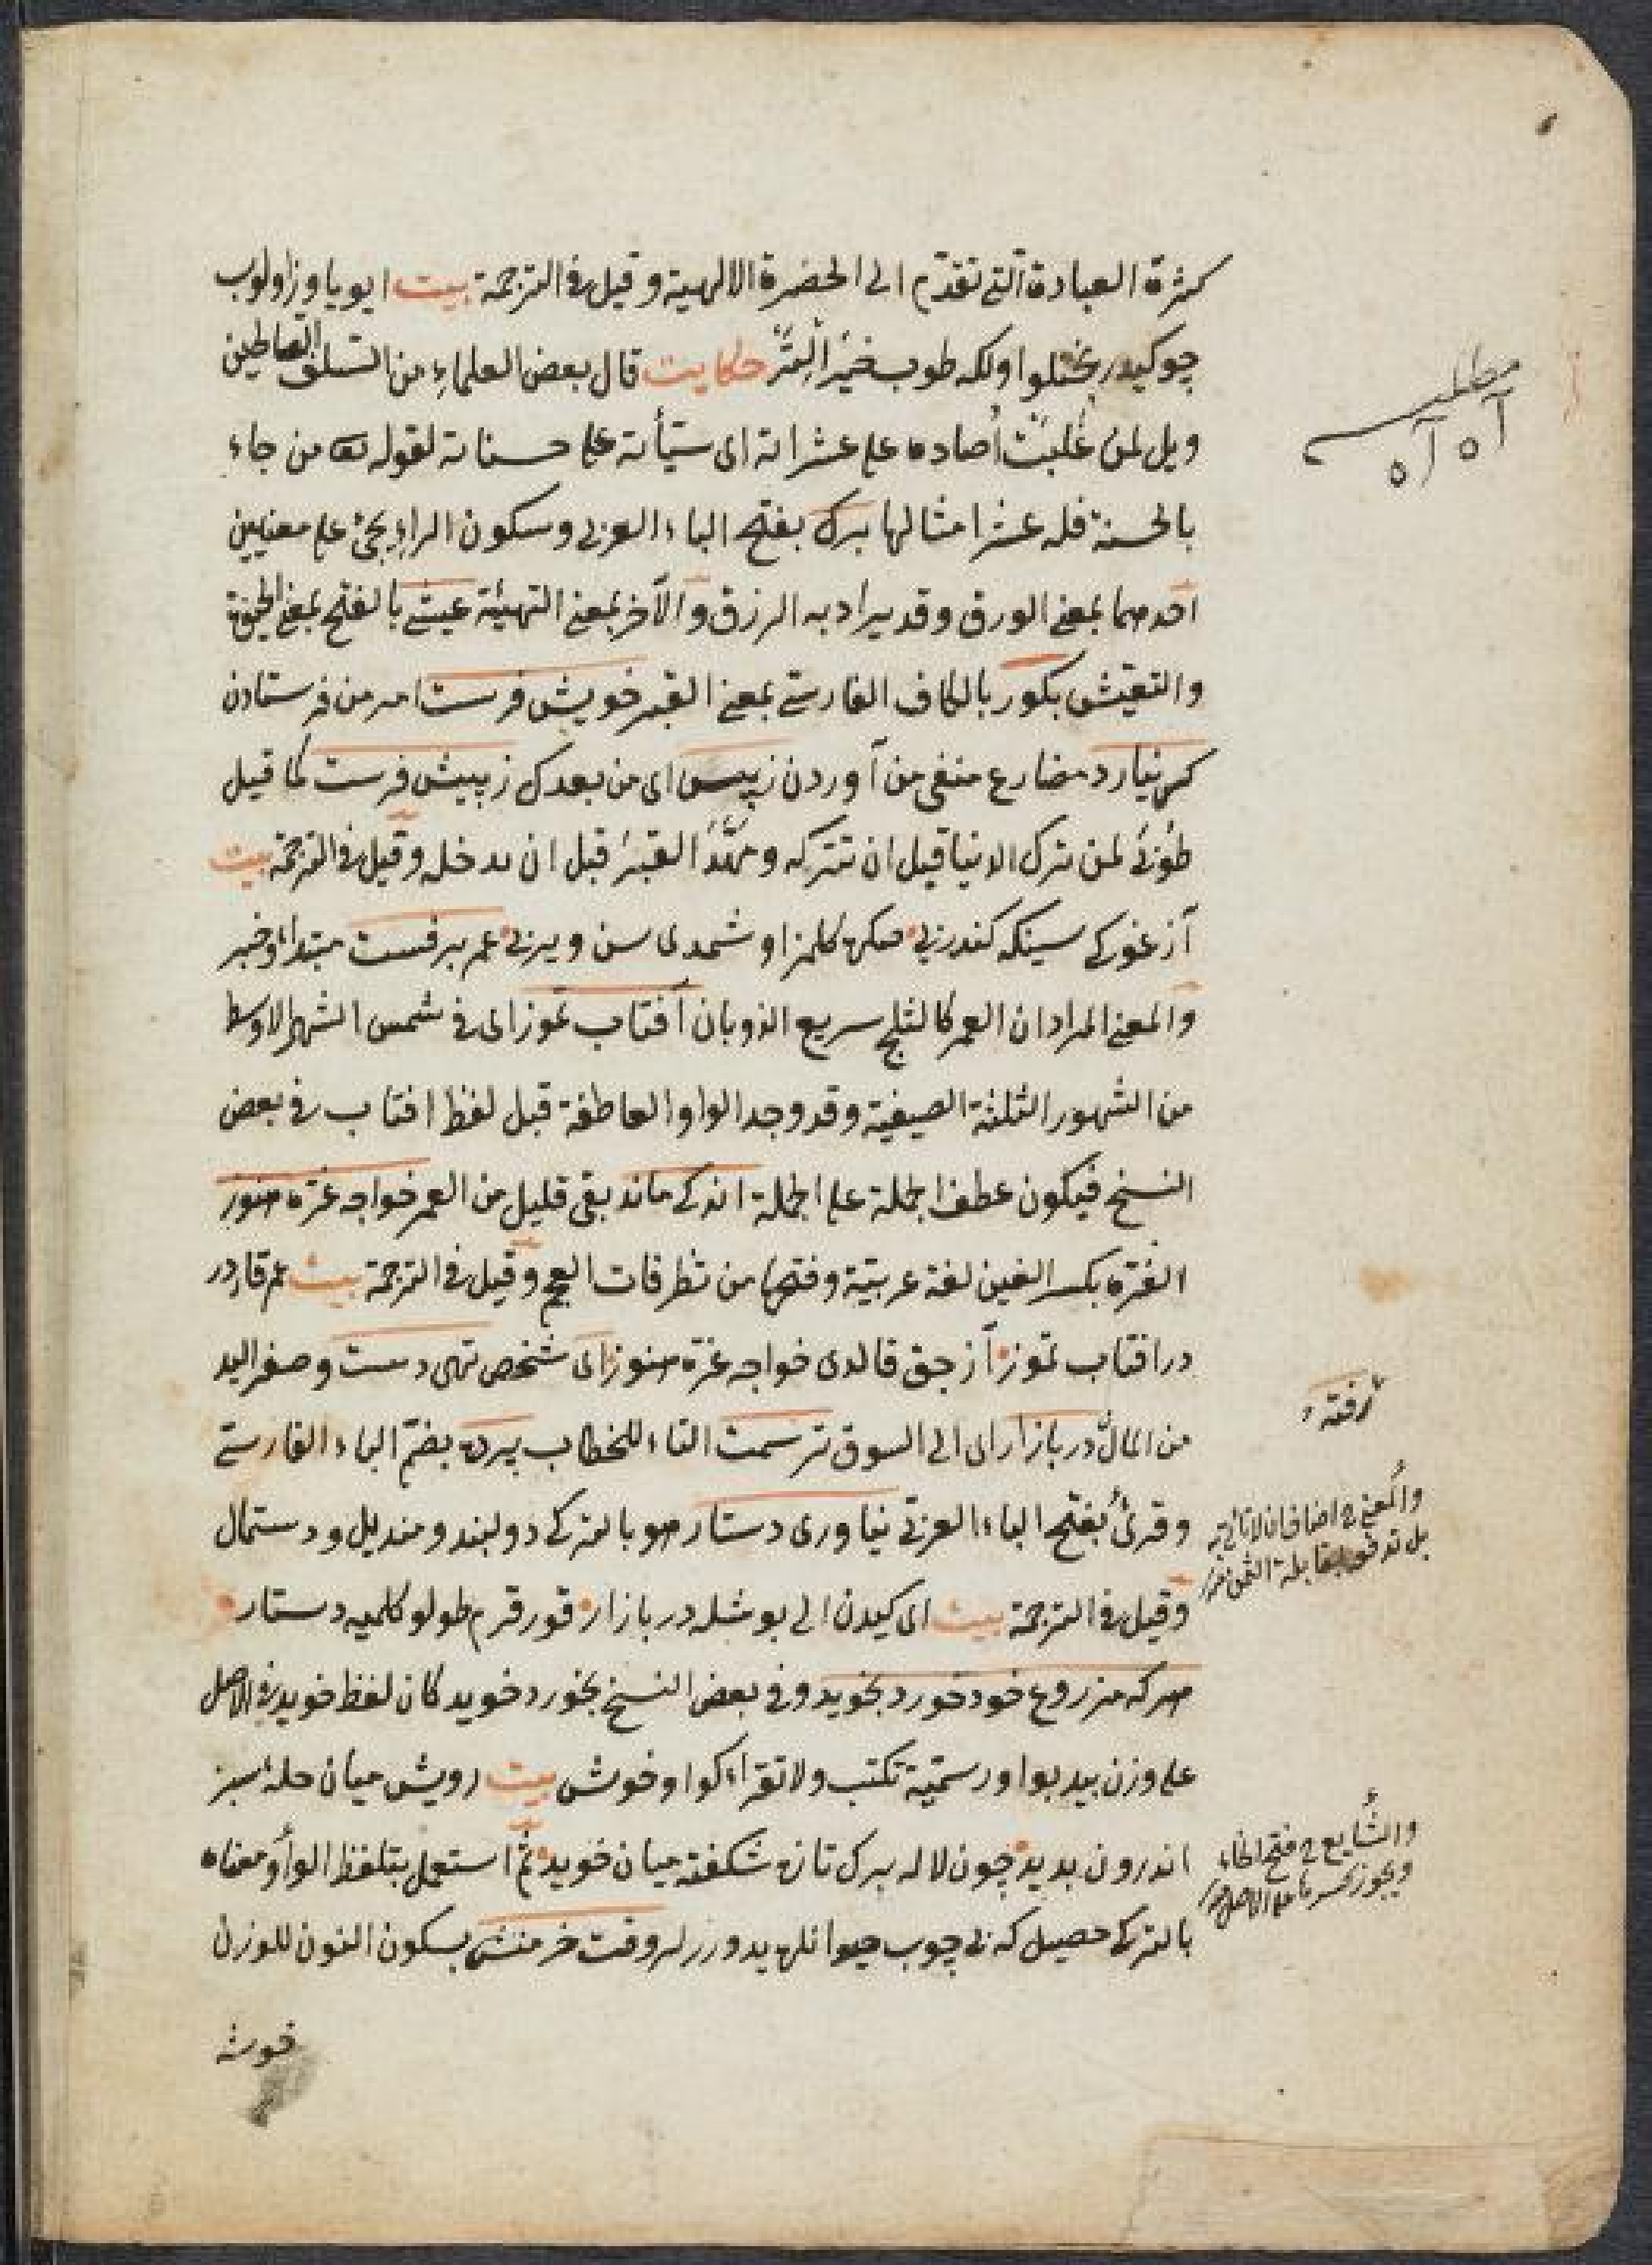 كثرة العبادة التي تقدّم الى الحضرة الالهية وقيل في الترجمة بيت ايو ياوز اولوب
چو كيدر بختلو اولكه طوب خير التر حكايت قال بعض العلماء من السلف العاملين
ويل لمن غلبت أحاده على عشراته اى سيّأته على حسناته لقوله تعالى من جاء
بالحسنة فله عشر امثالها برك بفتح الباء العربي وسكون الراء يجئ على معنيين
احدهما بمعنى الورق وقد يراد به الرزق والآخر بمعنى التهيئة عيشى بالفتح بمعنى الحيوة
والتعيّش بكور بالكاف الفارسي بمعنى القبر خويش فرست امر من فرستادن
كس نيارد مضارع منفى من آوردن ز پس اى من بعدك ز پيش فرست كما قيل
طوبى لمن ترك الدنيا قبل ان تتركه ومهّد القبر قبل ان يدخله وقيل في الترجمة بيت
از غورى سينكه كندر عمر برفست مبتداء وخبر
والمعنى المراد ان العمر كالثلج سريع الذوبان آفتاب تموز اى في شمس الشهر الاوسط
من الشهور الثلثة الصيفية وقد وجد الواو العاطفة قبل لفظ افتاب في بعض
النسخ فيكون عطف الجملة على الجملة اندكى ماند بقى قليل من العمر خواجه غره هنوز
الغره بكسر الغين لغة عربيّة وفتحها من تظرفات العجم وقيل في الترجمة بيت عمر قاردر
در افتاب تموز از جق قالدى خواجه غره هنوز اى شخص تهى دست وصفر اليد
من المال در بازار اى الى السوق ترسمت التاء للخطاب پرده بضمّ الباء الفارسي
وقرئ بفتح الباء العربي نياورى دستار هو بالتركى دولبند ومنديل ودستمال
وقيل في الترجمة بيت الى كيدن الى بوشله در بازار قورقرم طولو كلميه دستار
هر كه مزروع خود خورد بخويد وفى بعض النسخ بخورد خويد كان لفظ خويد في الاصل
على وزن بيد بواو رسميّة تكتب ولا تقراء كواو خوش بيت رويش ميان حلهء سبز
اندرون بديد چون لاله برك تازه شكفته ميان خويد ثم استعمل بتلفظ الواو ومعناه
بالتركى حصيل كه بي چوب حيوانلره يدوررلر وقت خرمنش بسكون النون للوزن
خوشه
مطلب
آه آه
رفته
والمعنى اخاف ان لا تأتى به
بل تدفعه بمقابلة الثمن
والشايع فتح الخاء
ويجوز كسرها على الاصل